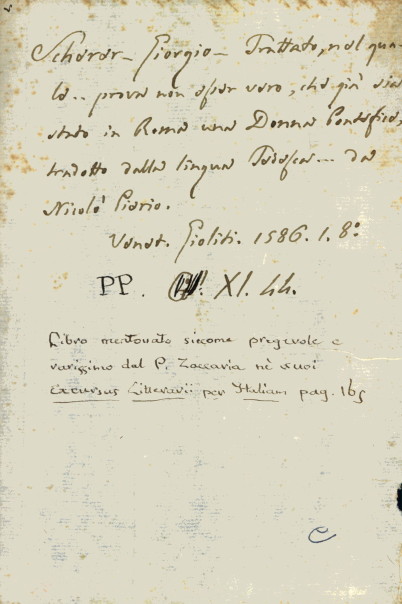 Scherer - Giorgio - Trattato, nel qua-
le .. prova non esser vero, che già sia
stato in Roma una Donna Pontefice,
tradotto dalla lingua Tedesca ... da
Nicolò Pierio.
Venet. Gioliti. 1586. 1. 8º
PP. XI. 44.
Libro mentovato siccome pregevole e
rarissimo dal P. Zaccaria nè suoi
Excursus Litterarii per Italiam pag. 165
C